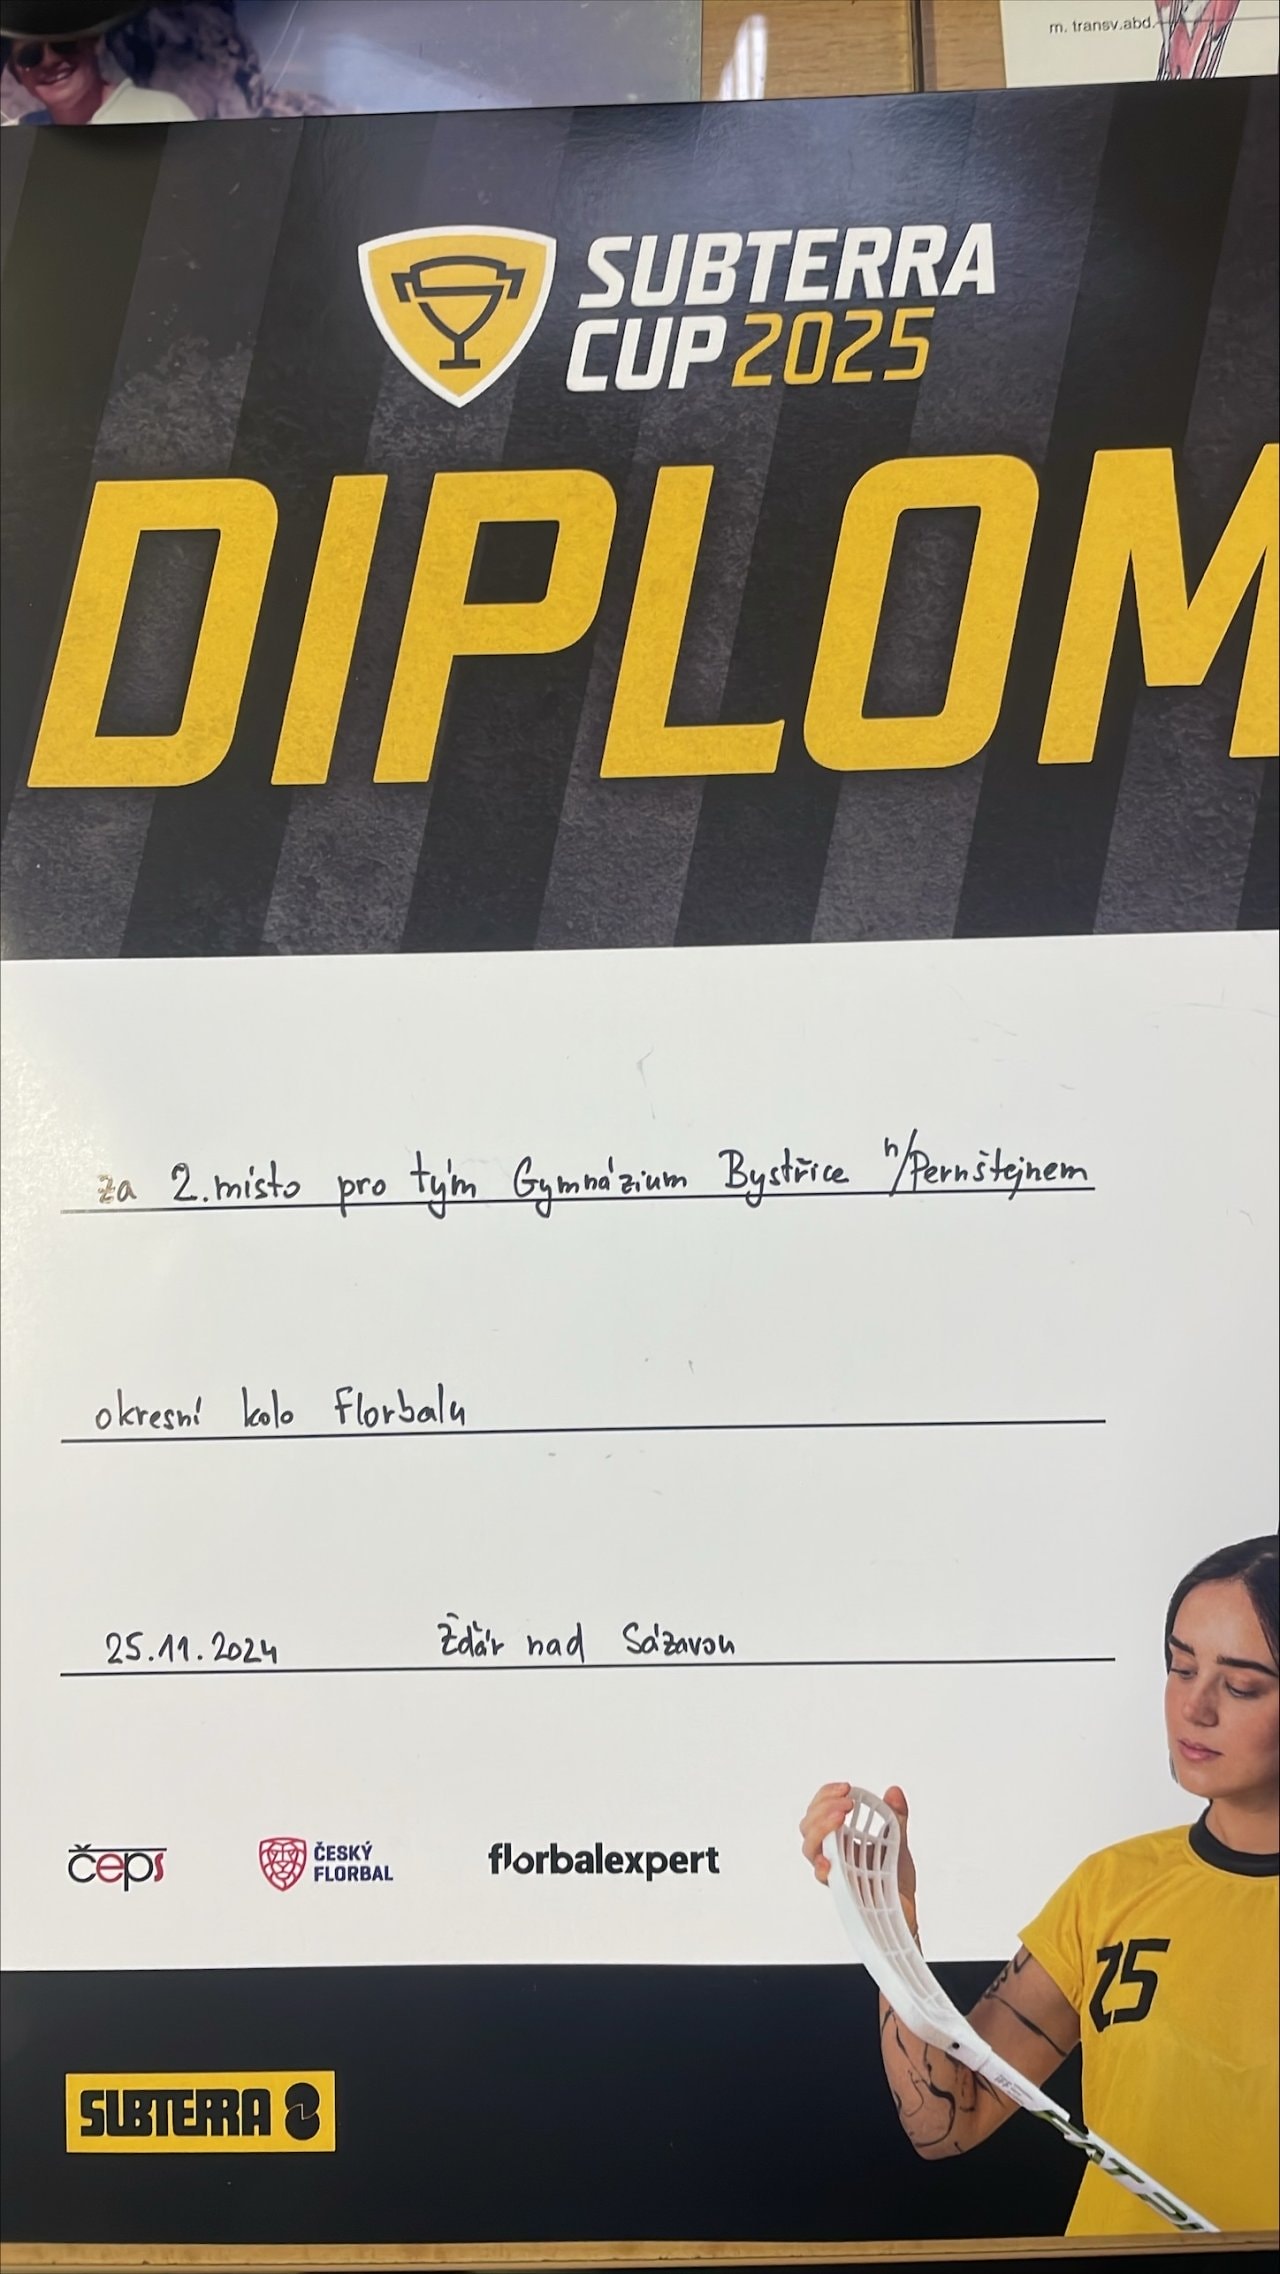 m. transv.abd.
SUBTERRA
CUP 2025
DIPLOM
za 2. místo pro tým Gymnázium Bystřice n/Pernštejnem
okresní kolo Florbalu
25.11.2024 Žďár nad Sázavou
čeps
ČESKÝ
FLORBAL
florbalexpert
25
SUBTERRA